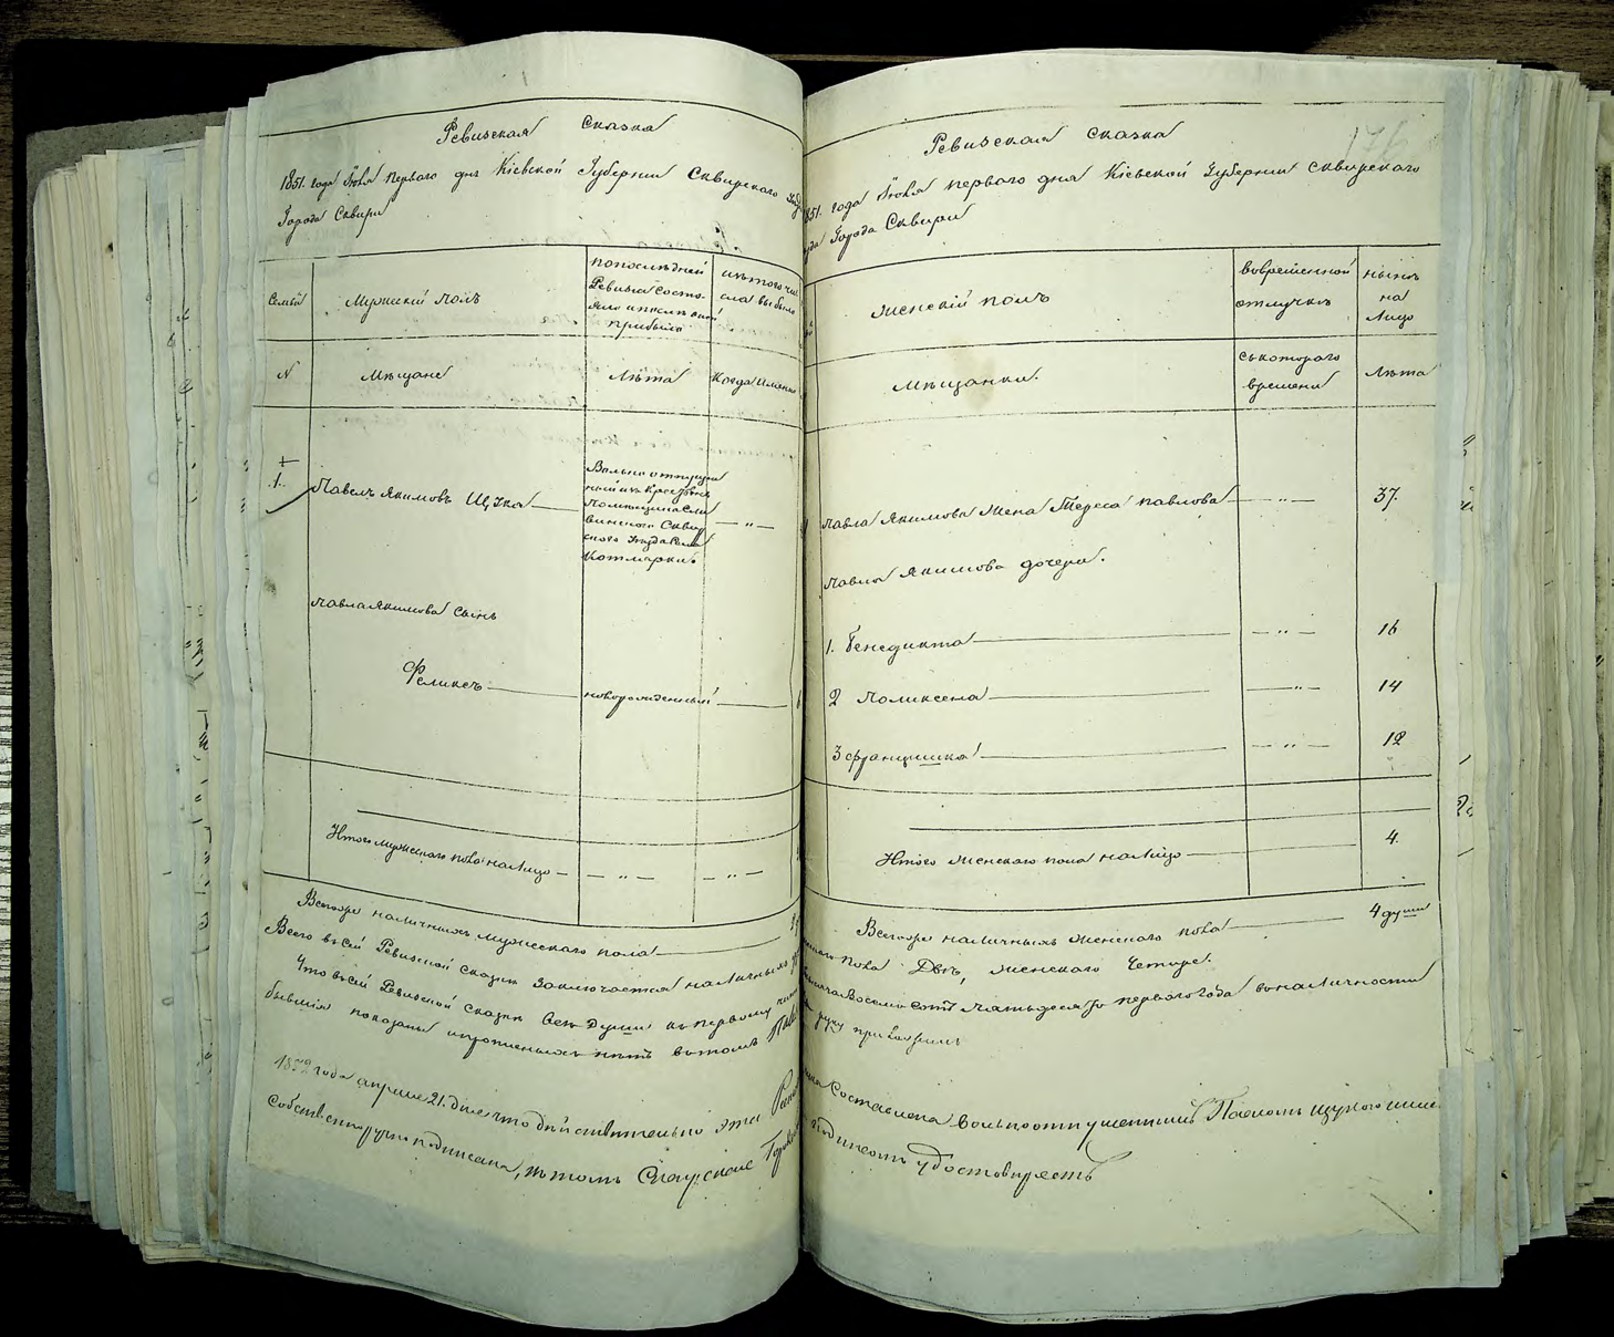 Ревизская Сказка
1851. года Июля Перваго дня Кіевской Губерніи Сквирскаго
Города Сквири
Семьи
Мужескій полъ
попослѣдней
Ревизіи состо-
яло и послѣ оной
прибыло
изъ того чи
сла выбыло
N
Мѣщане
Лѣта
Когда Именно
1.
Павелъ Якимовъ Щука
Вольноотпущен
ный изъ Крестьянъ
Помѣщика
Сквир
скаго Уезда Села
Котлярки.
— „ —
Павла Якимова Сынъ
Феликсъ
новорожденный
Итого мужескаго пола на Лицо — — „ — — „ —
Всего наличныхъ мужескаго пола
Всего въ сей Ревизской Сказки Заключается наличныхъ
Что въ сей Ревизской Сказки Всѣ Души къ первому
бывшіе показаны и прописныхъ нѣтъ въ томъ
1852 года апреля 21. дня что действительно эта
собственноручно подписана, въ томъ Сквирская
176
Ревизская Сказка
1851. года Июля перваго дня Кіевской Губерніи Сквирскаго
Города Сквири
Женскій полъ
во временной
отлучкѣ
нынѣ
на
Лицо
Мѣщанки.
съ котораго
времени
Лѣта
Павла Якимова Жена Тереса Павлова — „ — 37.
Павла Якимова дочери.
1. Бенедикта — „ — 16
2 Поликсена — „ — 14
3 Францишка — „ — 12
Итого Женскаго пола на Лицо 4.
Всего наличныхъ Женскаго пола 4 души
пола Двѣ, Женскаго Четыре.
Восемь сотъ Пятьдесятъ перваго Года въ наличности
руку приложилъ
Составлена вольноотпущеннимъ Павломъ Щукою
подписомъ удостовѣряетъ